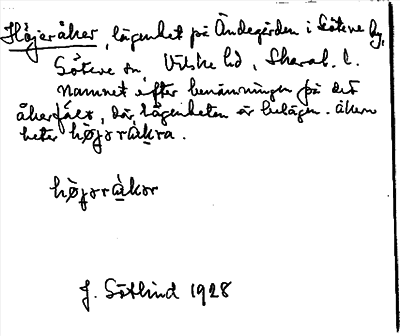 Höjeråker, lägenhet på Ändegården i Söteve by,
Söteve sn, Vilske hd, Skarab. l.
Namnet efter benämningen på det
åkerfält, där lägenheten är belägen. åkern
heter hø̀jɔrå̀kra.
hø̀jɔrå̀kər
J. Götlind 1928